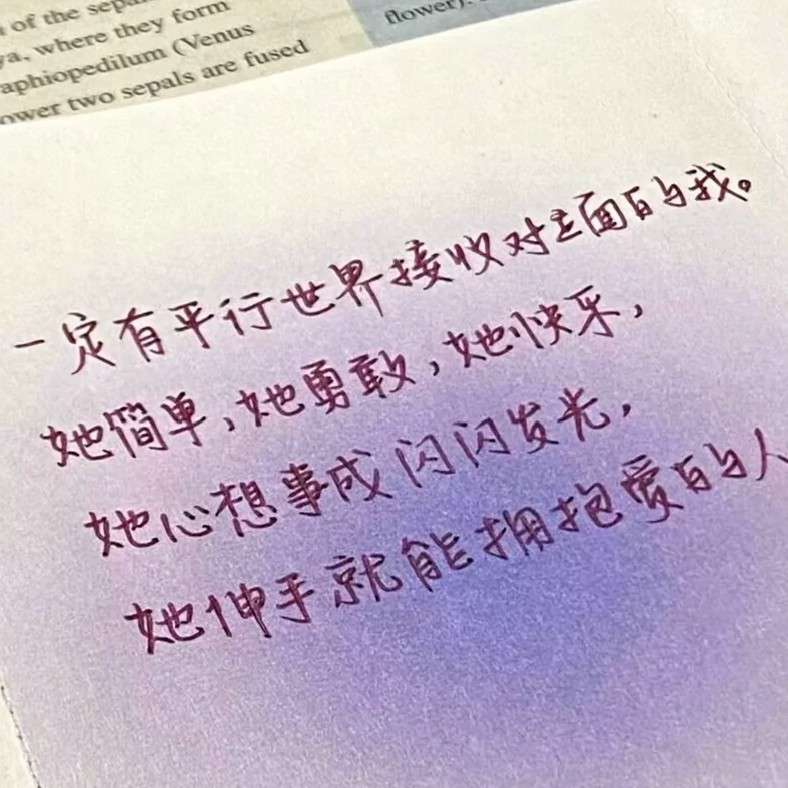 of the
where they form
aphiopedilum (Venus
ower two sepals are fused
flower).
一定有平行世界接收对立面的我。
她简单,她勇敢,她快乐,
她心想事成闪闪发光,
她伸手就能拥抱爱的人